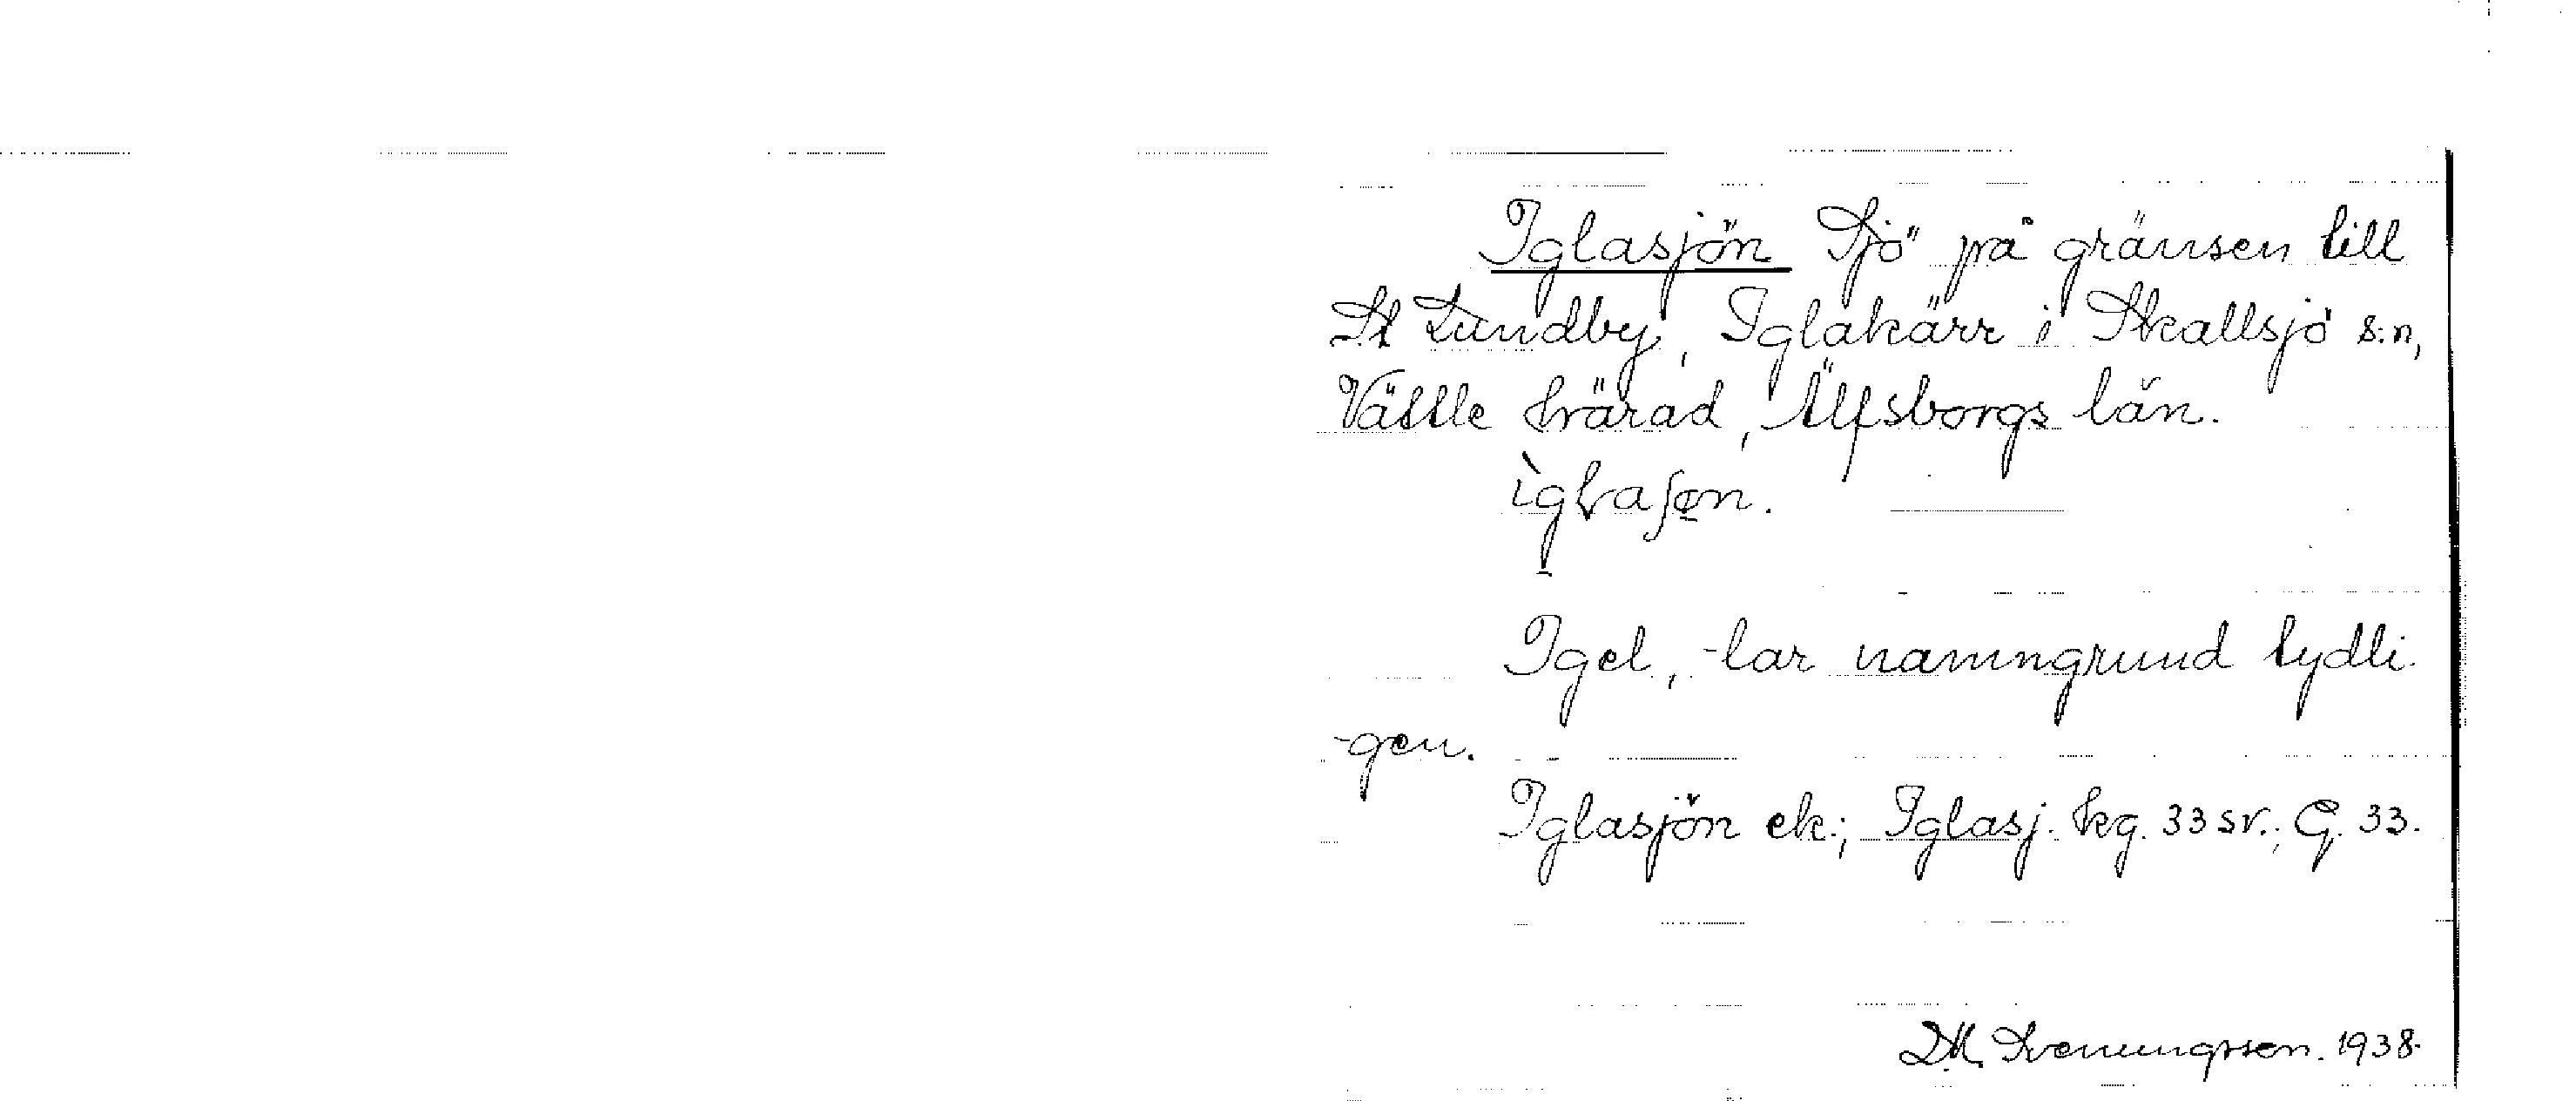 Iglasjön Sjö på gränsen till
St Lundby, Iglakärr i Skallsjö s:n,
Vättle härad, Älfsborgs län.
ìglaʃøn.
Igel, -lar namngrund tydli-
-gen.
Iglasjön ek.; Iglasj. kg. 33 sv.; G. 33.
D.M. Svenungsson. 1938.